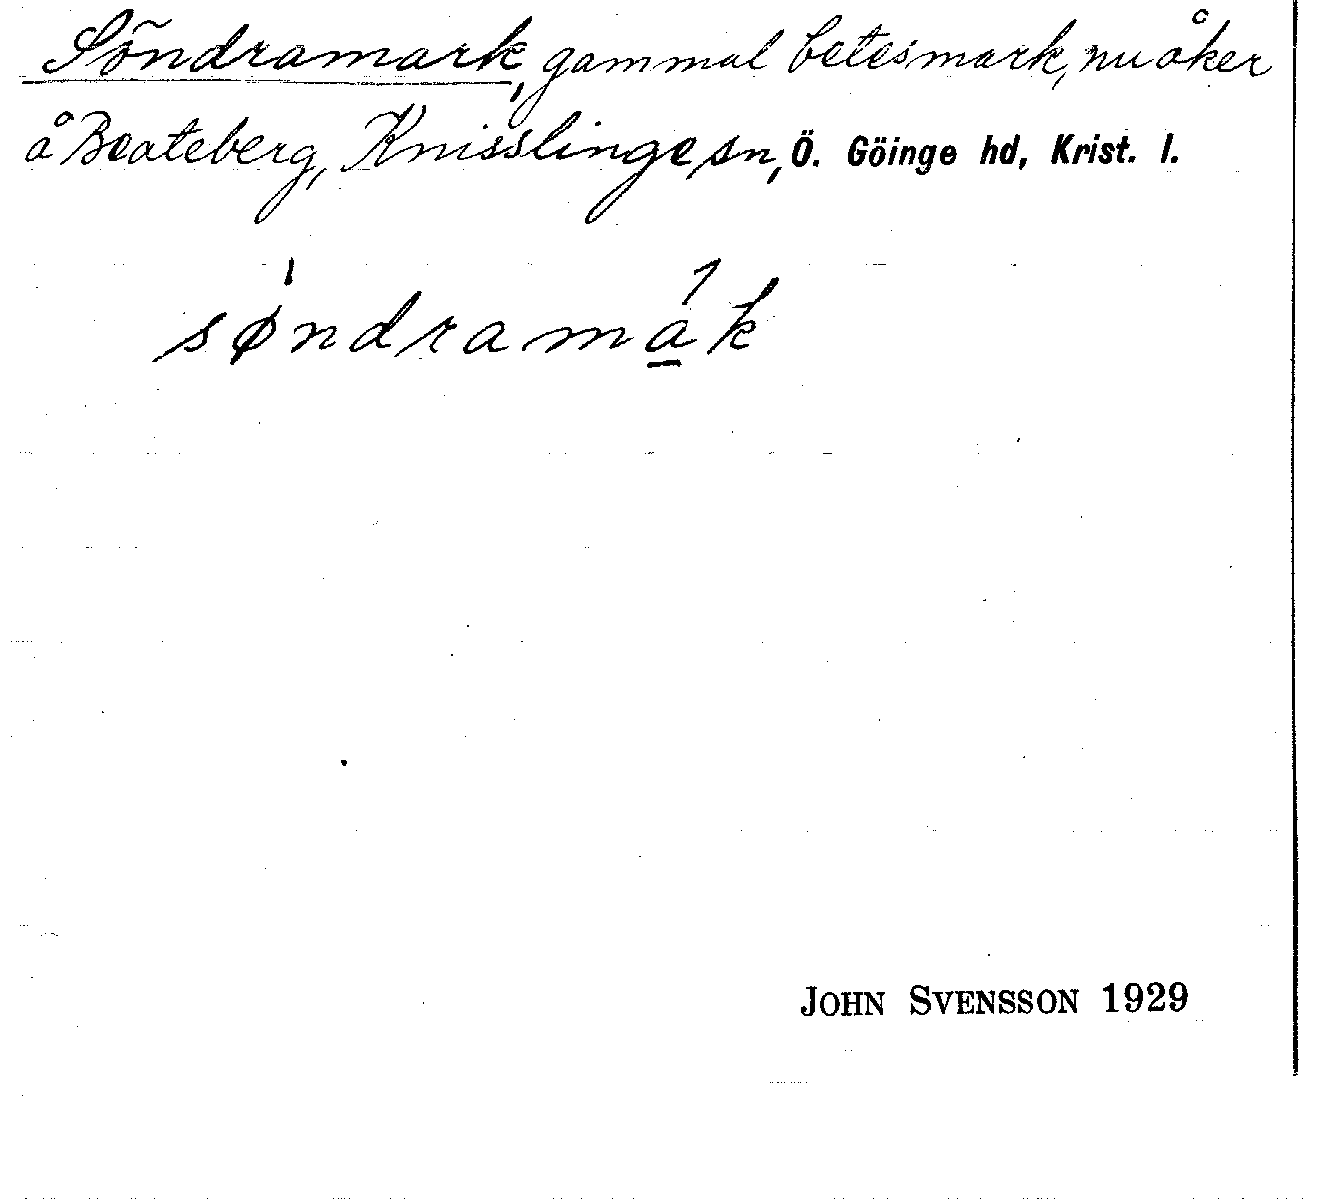 Söndramark, gammal betesmark, nu åker
å Beateberg, Knisslinge sn, Ö. Göinge hd, Krist. l.
sø̍ndramá̱k
JOHN SVENSSON 1929